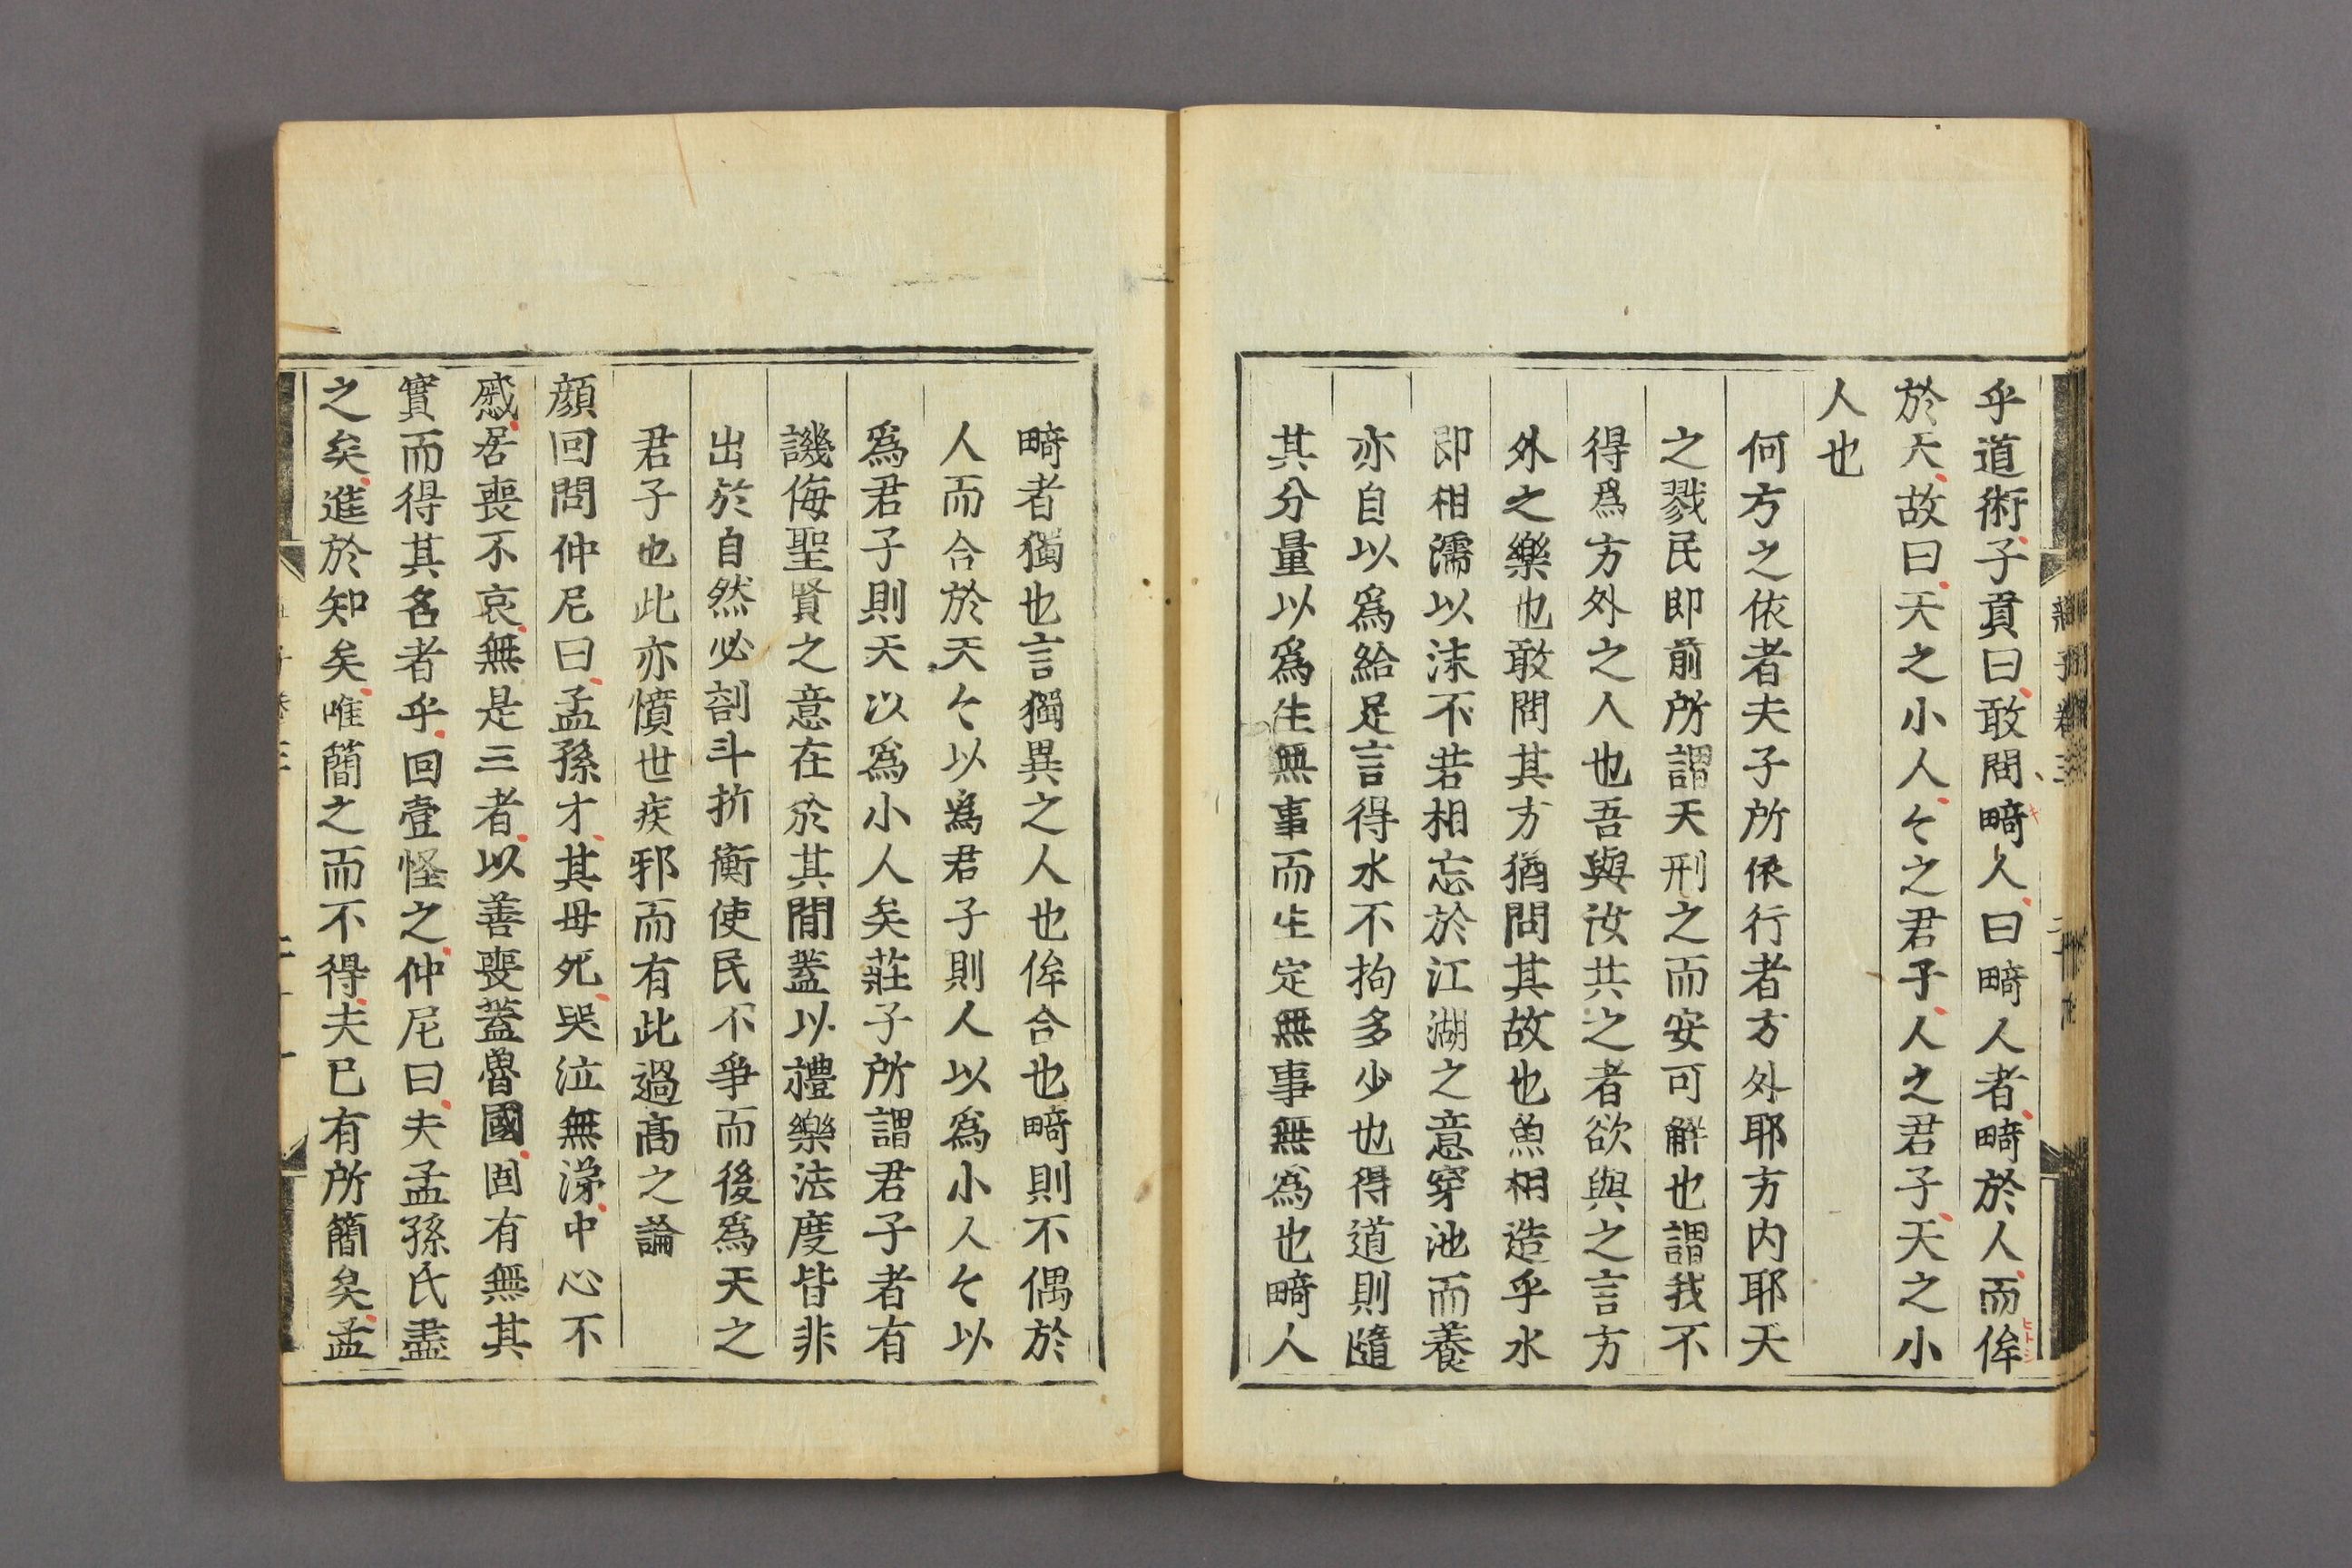 乎道術子貢曰敢問畸人曰畸人者畸於人而侔
於天故曰天之小人々之君子人之君子天之小
人也
何方之依者夫子所依行者方外耶方内耶天
之戮民即前所謂天刑之而安可解也謂我不
得爲方外之人也吾與汝共之者欲與之言方
外之樂也敢問其方猶問其故也魚相造乎水
即相濡以沫不若相忘於江湖之意穿池而養
亦自以爲給足言得水不拘多少也得道則隨
其分量以爲生無事而生定無事無爲也畸人
畸者獨也言獨異之人也侔合也畸則不偶於
人而合於天々以爲君子則人以爲小人々以
爲君子則天以爲小人矣莊子所謂君子者有
譏侮聖賢之意在於其間蓋以禮樂法度皆非
出於自然必剖斗折衡使民不爭而後爲天之
君子也此亦憤世疾邪而有此過高之論
顔回問仲尼曰孟孫才其母死哭泣無涕中心不
慼居喪不哀無是三者以善喪蓋魯國固有無其
實而得其名者乎回壹怪之仲尼曰夫孟孫氏盡
之矣進於知矣唯簡之而不得夫已有所簡矣孟
莊子卷三
キ
ヒトシ